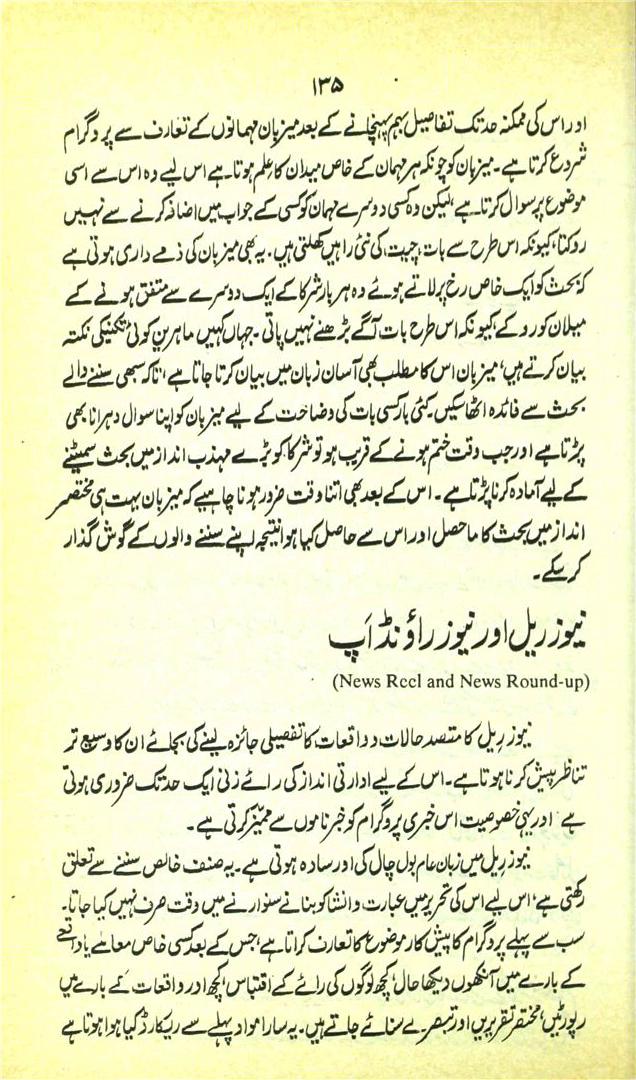 ۱۳۵
اور اس کی ممکنہ حد تک تفاصیل بہم پہنچانے کے بعد میزبان مہمانوں کے تعارف سے پروگرام
شروع کرتا ہے۔ میزبان کو چونکہ ہر مہمان کے خاص میدان کا علم ہوتا ہے اس لیے وہ اس سے اسی
موضوع پر سوال کرتا ہے، لیکن وہ کسی دوسرے مہمان کو کسی کے جواب میں اضافہ کرنے سے نہیں
روکتا، کیونکہ اس طرح سے بات چیت، کی نئی راہیں کھلتی ہیں۔ یہ بھی میزبان کی ذمے داری ہوتی ہے
کہ بحث کو ایک خاص رخ پر لاتے ہوئے وہ ہر بار شرکا کے ایک دوسرے سے متفق ہونے کے
میلان کو روکے، کیونکہ اس طرح بات آگے بڑھنے نہیں پاتی۔ جہاں کہیں ماہرین کوئی تکنیکی نکتہ
بیان کرتے ہیں، میزبان اس کا مطلب بھی آسان زبان میں بیان کرتا جاتا ہے، تاکہ سبھی سننے والے
بحث سے فائدہ اٹھا سکیں۔ کئی بار کسی بات کی وضاحت کے لیے میزبان کو اپنا سوال دہرانا بھی
پڑتا ہے اور جب وقت ختم ہونے کے قریب ہو تو شرکا کو بڑے مہذب انداز میں بحث سمیٹنے
کے لیے آمادہ کرنا پڑتا ہے۔ اس کے بعد بھی اتنا وقت ضرور ہونا چاہیے کہ میزبان بہت ہی مختصر
انداز میں بحث کا ماحصل اور اس سے حاصل کیا ہوا نتیجہ اپنے سننے والوں کے گوش گذار
کر سکے۔
نیوز ریل اور نیوز راؤنڈ اَپ
(News Reel and News Round-up)
نیوز ریل کا مقصد حالات و واقعات کا تفصیلی جائزہ لینے کی بجائے ان کا وسیع تر
تناظر پیش کرنا ہوتا ہے۔ اس کے لیے ادارتی انداز کی رائے زنی ایک حد تک ضروری ہوتی
ہے اور یہی خصوصیت اس خبری پروگرام کو خبرناموں سے ممیّز کرتی ہے۔
نیوز ریل میں زبان عام بول چال کی اور سادہ ہوتی ہے۔ یہ صنف خالص سننے سے تعلق
رکھتی ہے، اس لیے اس کی تحریر میں عبارت و انشا کو بنانے سنوارنے میں وقت صرف نہیں کیا جاتا۔
سب سے پہلے پروگرام کا پیش کار موضوع کا تعارف کراتا ہے، جس کے بعد کسی خاص معاملے یا واقعے
کے بارے میں آنکھوں دیکھا حال، کچھ لوگوں کی رائے کے اقتباس، کچھ اور واقعات کے بارے میں
رپورٹیں، مختصر تقریریں اور تبصرے سنائے جاتے ہیں۔ یہ سارا مواد پہلے سے ریکارڈ کیا ہوا ہوتا ہے